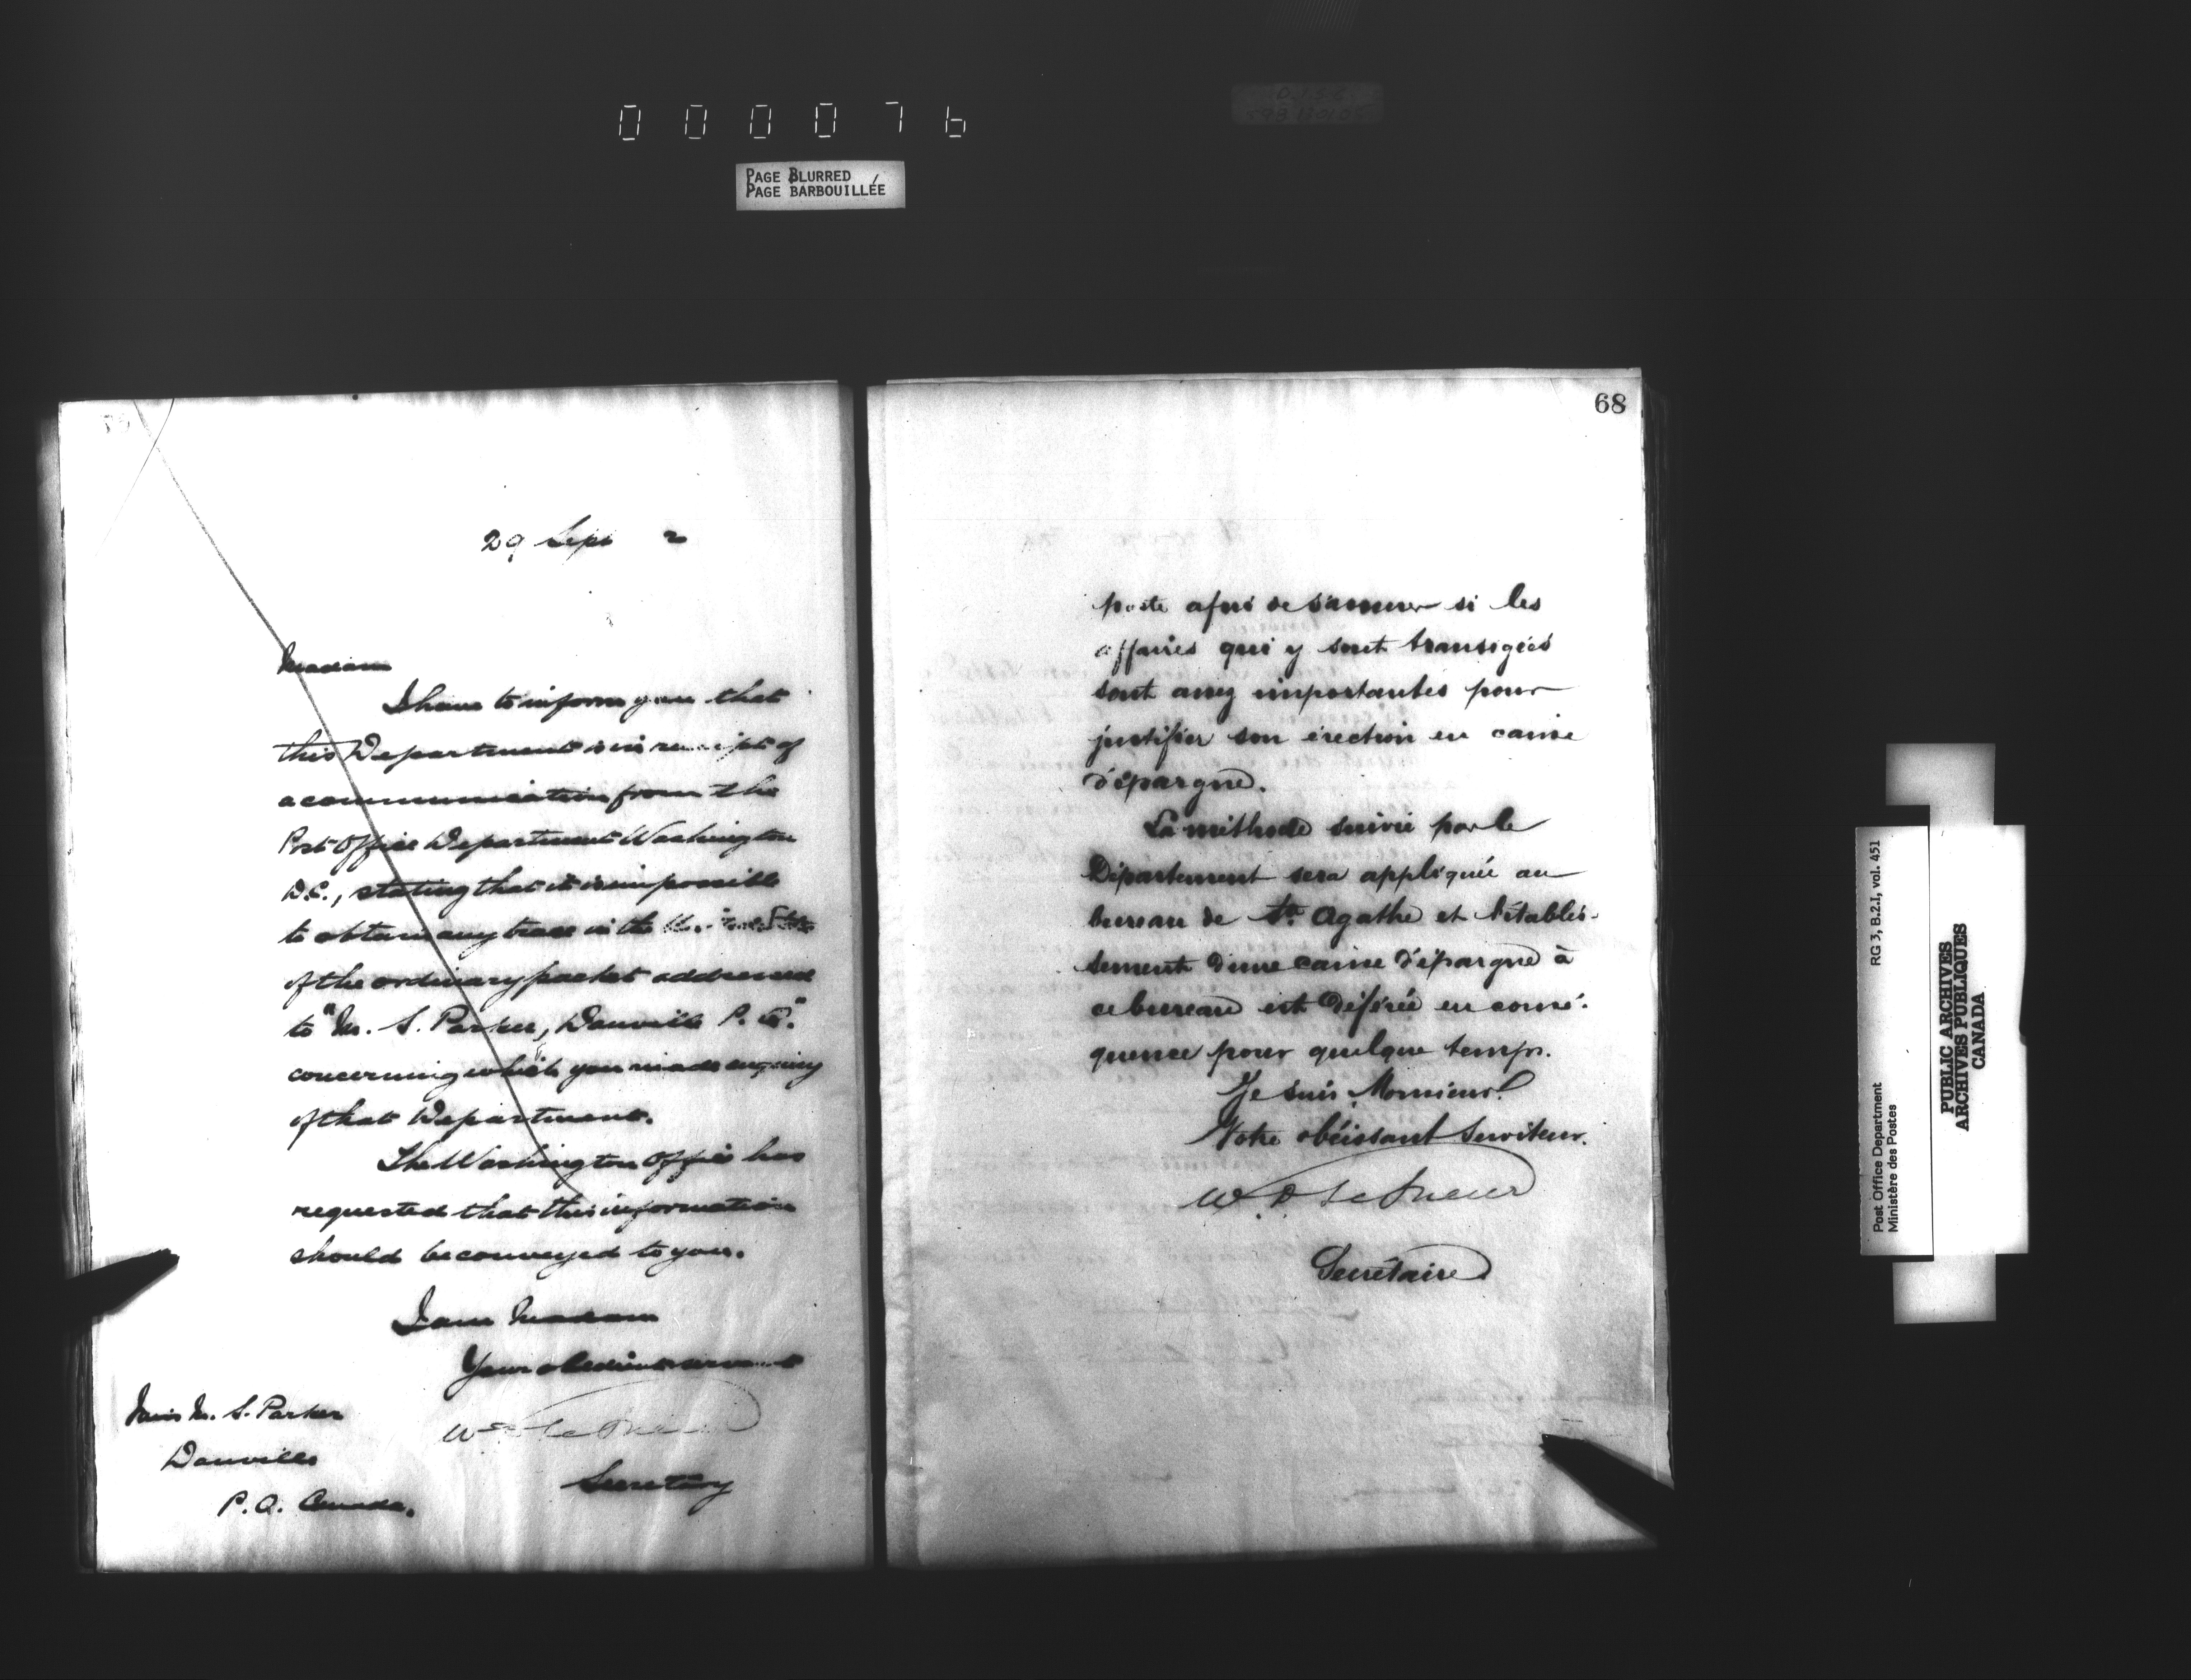 000076
PAGE BLURRED
PAGE BARBOUILLÉE
29 Sept 2
Madam
I have to inform you that
this Department is in receipt of
a communication from the
Post Office Department Washington
D.C., stating that it is impossible
to obtain any trace in the
of the ordinary packet addressed
to "M. S. Parker, Danville P. Q."
concerning which you made enquiry
of that Department.
The Washington Office has
requested that this information
should be conveyed to you.
I am Madam
Your obedient servant
W D LeSueur
Secretary
Miss M. S. Parker
Danville
P. Q. Canada.
68
poste afin de s'assurer si les
affaires qui y sont transigées
sont assez importantes pour
justifier son érection en caisse
d'épargne.
La méthode suivie par le
Département sera appliquée au
bureau de Ste Agathe et l'établis-
sement d'une caisse d'épargne à
ce bureau est différée en consé-
quence pour quelque temps.
Je suis, Monsieur,
Votre obéissant serviteur.
W. D LeSueur
Secrétaire
Post Office Department
Ministère des Postes
RG 3, B.2.I, vol. 451
PUBLIC ARCHIVES
ARCHIVES PUBLIQUES
CANADA